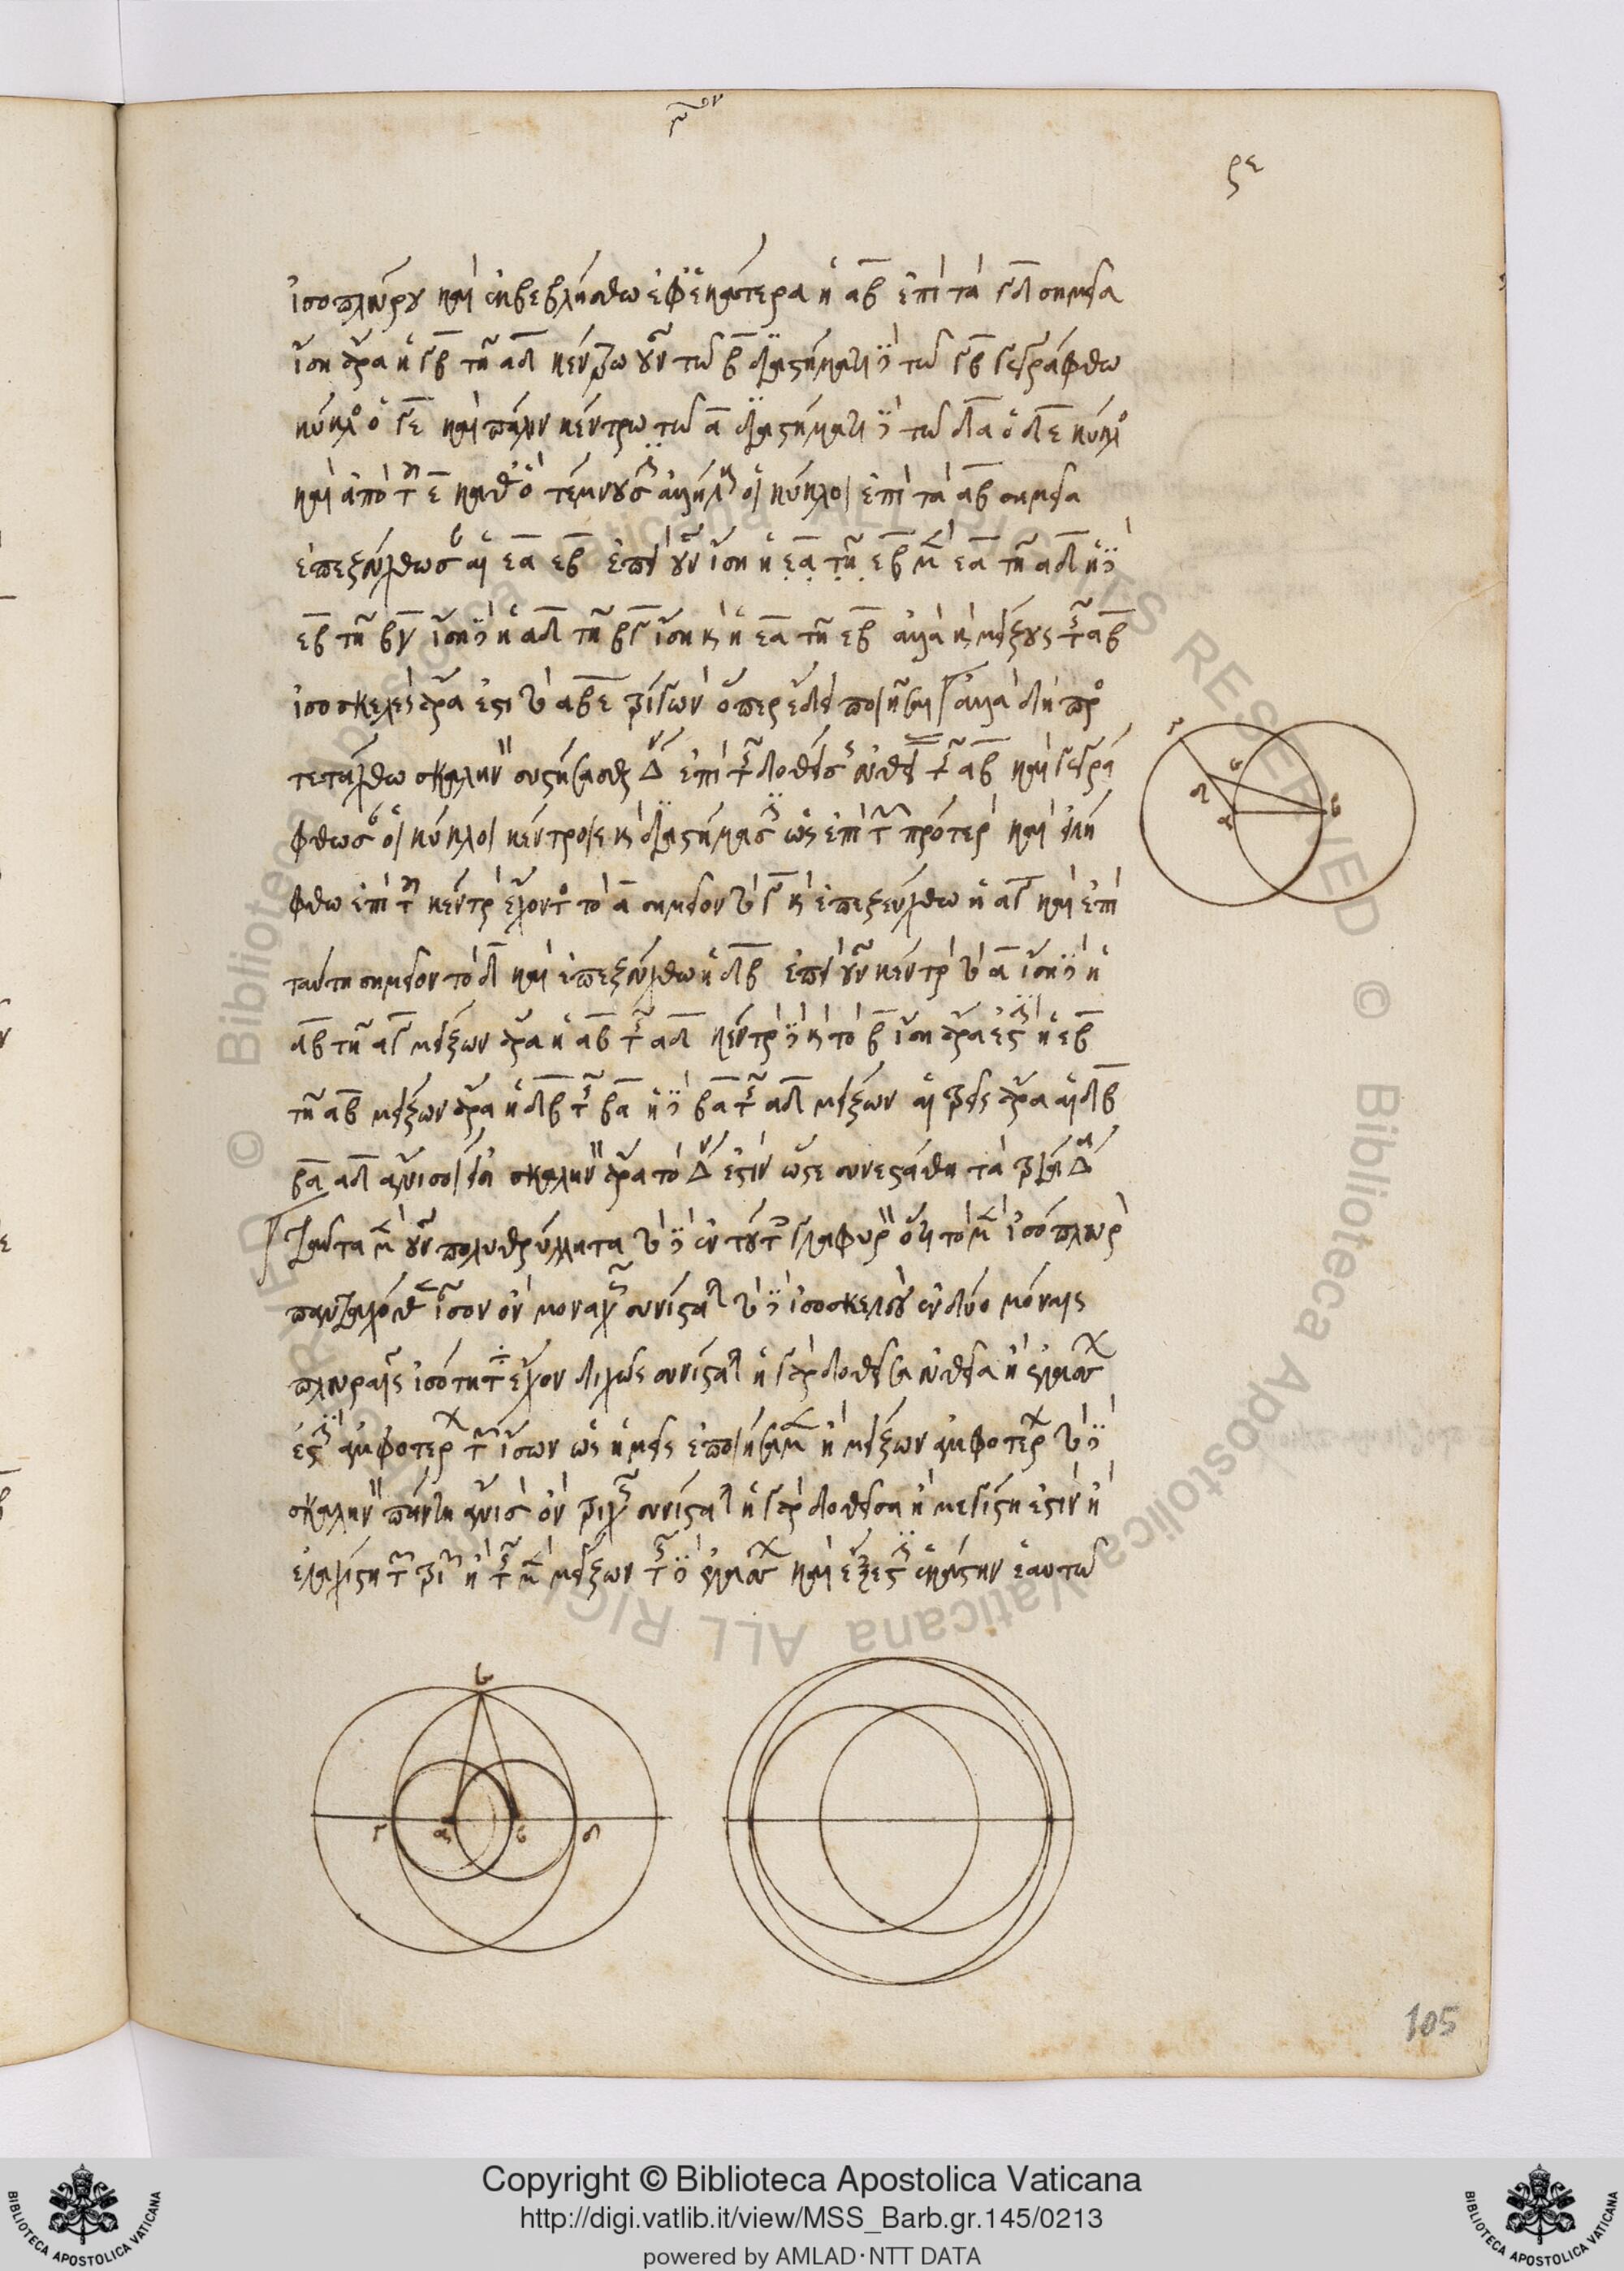 ρε
ἰσοπλεύρου καὶ ἐκβεβλήσθω ἐφ ἑκάτερα ἡ αβ ἐπὶ τὰ γδ σημεῖα
ἴση ἄρα ἡ γβ τῇ αδ κέντρω οὖν τῶ β διαστήματι δὲ τῶ γβ γεγράφθω
κύκλος ὁ γε καὶ πάλιν κέντρω τῶ α διαστήματι δὲ τῶ δα ὁ δε κύκλος
καὶ ἀπὸ τοῦ ε καθ ὃ τέμνουσιν ἀλλήλους οἱ κύκλοι ἐπὶ τὰ αβ σημεῖα
ἐπεζεύχθωσαν αἱ εα εβ ἐπεὶ οὖν ἴση ἡ εα τῇ εβ μὲν εα τῇ αδ ἡ δὲ
εβ τῇ βγ ἴση δὲ ἡ αδ τῇ βγ ἴση καὶ ἡ εα τῇ εβ ἀλλὰ καὶ μείζους τῆς αβ
ἰσοσκελὲς ἄρα ἐστὶ τὸ αβε τρίγωνον ὅπερ ἔδει ποιῆσαι ἀλλὰ δὴ προς
τετάχθω σκαληνὸν συστήσασθαι Δον ἐπὶ τῆς δοθείσης εὐθείας τῆς αβ καὶ γεγρά
φθωσαν οἱ κύκλοι κέντροις καὶ διαστήμασιν ὡς ἐπὶ τοῦ πρότερον καὶ εἰλή
φθω ἐπὶ τοῦ κέντρον ἔχοντος τὸ α σημεῖον τὸ γ καὶ ἐπεζεύχθω ἡ αγ καὶ ἐπὶ
ταύτη σημεῖον τὸ δ καὶ ἐπεζεύχθω ἡ δβ ἐπεὶ οὖν κέντρον τὸ α ἴση δὲ ἡ
αβ τῇ αγ μείζων ἄρα ἡ αβ τῆς αδ κέντρον δὲ καὶ τὸ β ἴση ἄρα ἐστὶν ἡ εβ
τῇ αβ μείζων ἄρα ἡ δβ τῆς βα ἡ δὲ βα τῆς αδ μείζων αἱ τρεῖς ἄρα αἱ δβ
βα αδ ἄνισοι εἰσι σκαληνὸν ἄρα τὸ Δον ἐστιν ὥστε συνεστάθη τὰ τρία Δα
ταῦτα μὲν οὖν πολυθρύλλητα τὸ δὲ ἐν τούτοις γλαφυρὸν ὅτι τὸ μὲν ἰσόπλευρον
πανταχόθεν ἴσον ὂν μοναχῶς συνίσταται τὸ δὲ ἰσοσκελὲς ἐν δύο μόναις
πλευραῖς ἰσότητα ἔχον διχῶς συνίσταται ἡ γὰρ δοθεῖσα εὐθεῖα ἢ ἐλάττων
ἐστὶν ἀμφοτέρων τῶν ἴσων ὡς ἡμεῖς ἐποιήσαμεν ἢ μείζων ἀμφοτέρων τὸ δὲ
σκαληνὸν πάντη ἄνισον ὂν τριχῶς συνίσταται ἡ γὰρ δοθεῖσα ἢ μεγίστη ἐστιν ἢ
ἐλαχίστη τῶν τριῶν ἢ τῆς μὲν μείζων τῆς δὲ ἐλάττων καὶ ἔξεστιν ἑκάστην ἑαυτῶ
γ
δ
α
β
γ α β δ
105
Copyright © Biblioteca Apostolica Vaticana
http://digi.vatlib.it/view/MSS_Barb.gr.145/0213
powered by AMLAD·NTT DATA
BIBLIOTECA APOSTOLICA VATICANA